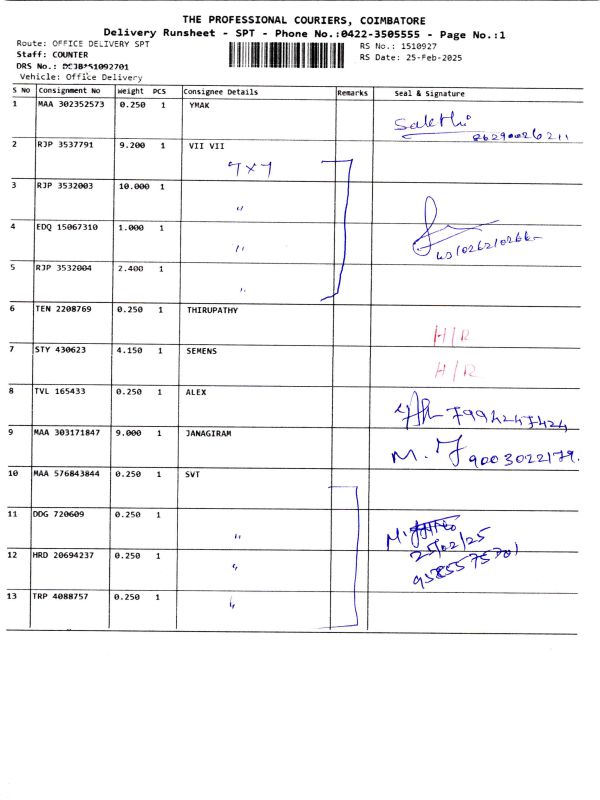 THE PROFESSIONAL COURIERS, COIMBATORE
Delivery Runsheet - SPT - Phone No.:0422-3505555 - Page No.:1
Route: OFFICE DELIVERY SPT
RS No.: 1510927
Staff: COUNTER
RS Date: 25-Feb-2025
DRS No.:
Vehicle: Office Delivery
S No Consignment No Weight PCS Consignee Details Remarks Seal & Signature
1 MAA 302352573 0.250 1 YMAK
Sakthi
86290026211
2 RJP 3537791 9.200 1 VII VII
7x7
3 RJP 3532003 10.000 1
"
4 EDQ 15067310 1.000 1
"
5 RJP 3532004 2.400 1
"
6 TEN 2208769 0.250 1 THIRUPATHY
H/R
7 STY 430623 4.150 1 SEMENS
H/R
8 TVL 165433 0.250 1 ALEX
7994247424
9 MAA 303171847 9.000 1 JANAGIRAM
M. J 9003022179.
10 MAA 576843844 0.250 1 SVT
11 DDG 720609 0.250 1
"
25/02/25
12 HRD 20694237 0.250 1
"
13 TRP 4088757 0.250 1
"